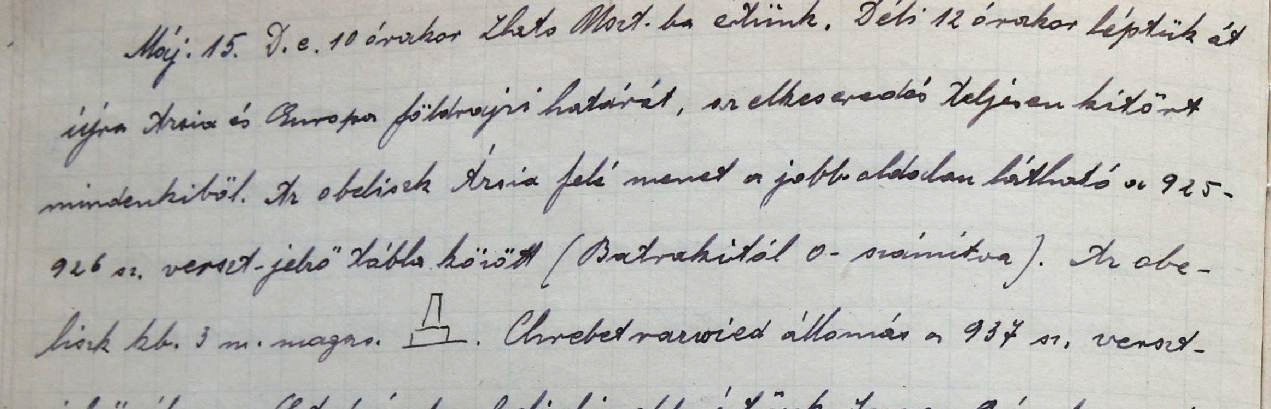 Máj. 15. D. e. 10 órakor Zlato Uszt.-ba értünk. Déli 12 órakor léptük át
újra Ázsia és Europa földrajzi határát, az elkeseredés teljesen kitört
mindenkiből. Az obeliszk Ázsia felé menet a jobb oldalon látható a 925-
926 sz. verszt-jelző tábla között (Batrakitól 0-számítva). Az obe-
liszk kb. 3 m. magas. . Chrebet razwied állomás a 937 sz. verszt-